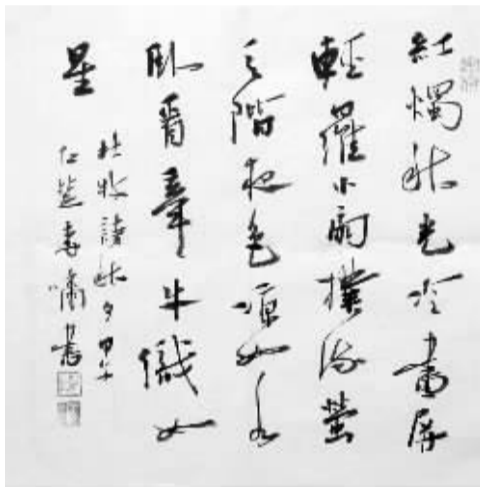 紅燭秋光冷畫屏
輕羅小扇撲流螢
天階夜色涼如水
臥看牽牛織女
星
杜牧詩秋夕甲午
嘯書